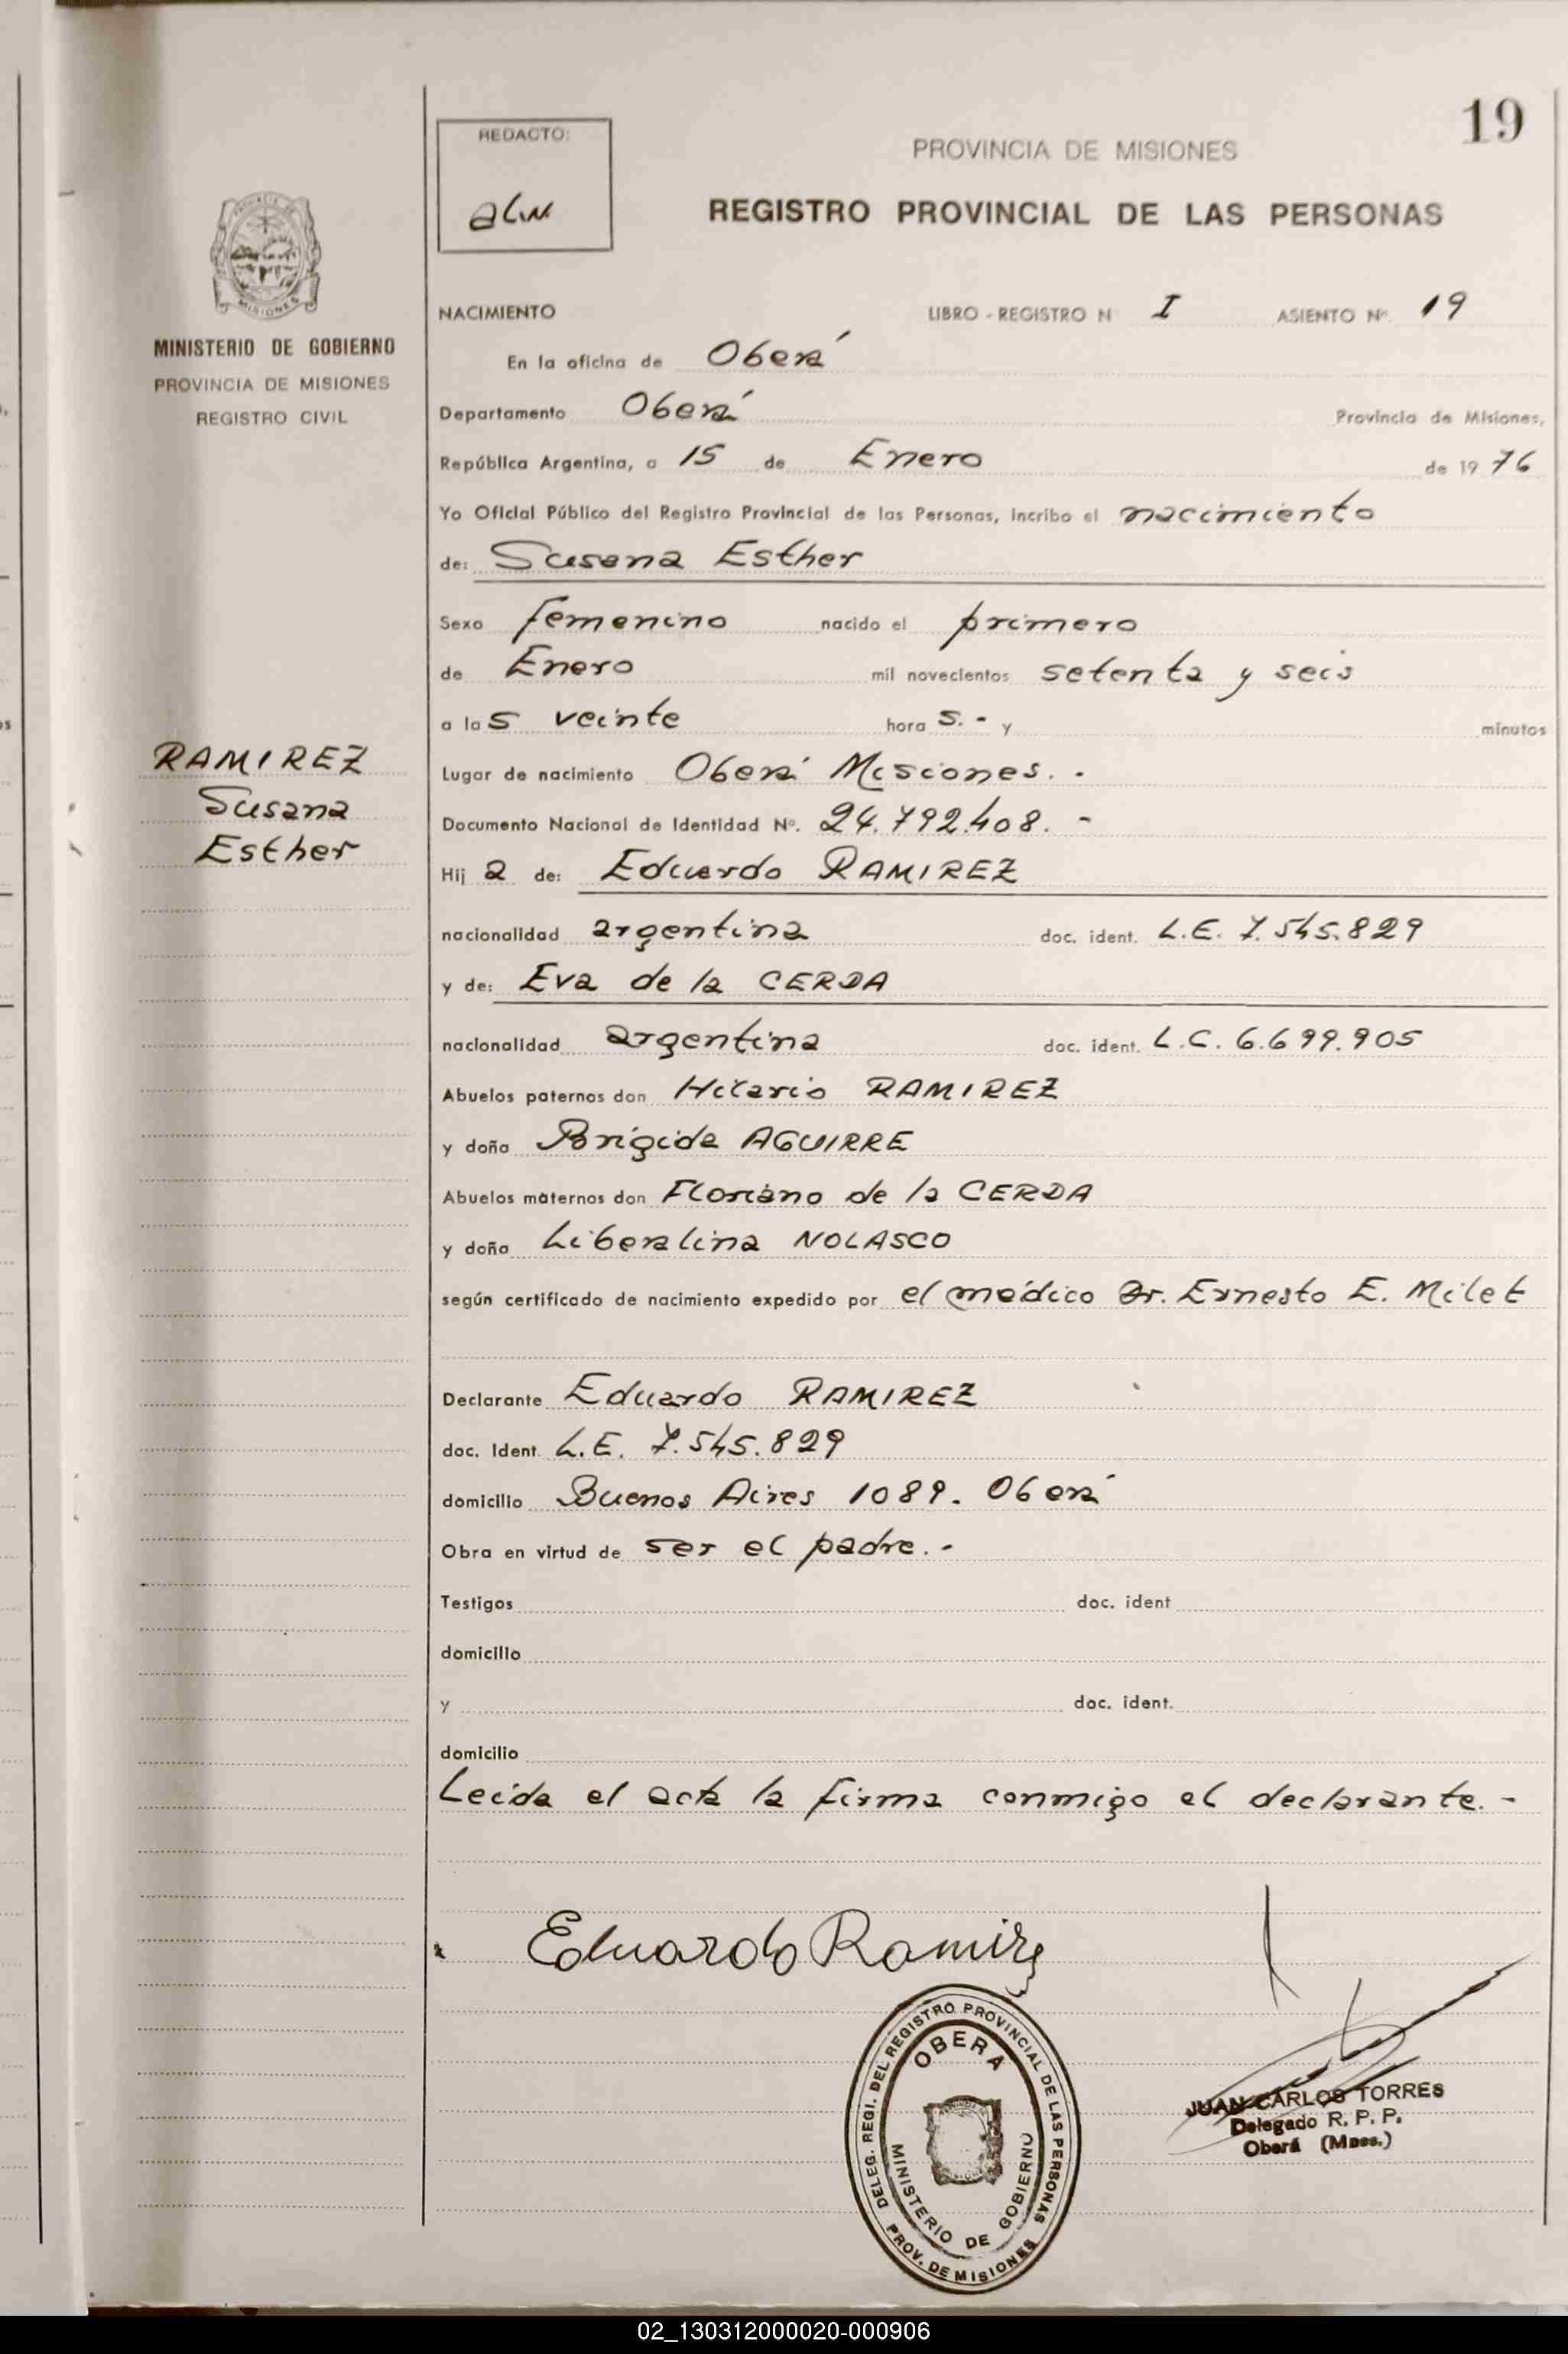 19
REDACTO:
PROVINCIA DE MISIONES
REGISTRO PROVINCIAL DE LAS PERSONAS
MISIONES
MINISTERIO DE GOBIERNO
PROVINCIA DE MISIONES
REGISTRO CIVIL
NACIMIENTO LIBRO - REGISTRO N I ASIENTO Nº 19
En la oficina de Oberá
Departamento Oberá Provincia de Misiones,
República Argentina, a 15 de Enero de 19 76
Yo Oficial Público del Registro Provincial de las Personas, incribo el nacimiento
de: Susana Esther
Sexo femenino nacido el primero
de Enero mil novecientos setenta y seis
a las veinte hora s.- y minutos
RAMIREZ
Susana
Esther
Lugar de nacimiento Oberá Misiones.-
Documento Nacional de Identidad Nº. 24.792.408.-
Hij a de: Eduardo RAMIREZ
nacionalidad argentina doc. ident. L.E. 7.545.829
y de: Eva de la CERDA
nacionalidad argentina doc. ident. L.C. 6.699.905
Abuelos paternos don Hilario RAMIREZ
y doña Brígida AGUIRRE
Abuelos maternos don Floriano de la CERDA
y doña Liberalina NOLASCO
según certificado de nacimiento expedido por el médico Dr. Ernesto E. Milet
Declarante Eduardo RAMIREZ
doc. Ident. L.E. 7.545.829
domicilio Buenos Aires 1089. Oberá
Obra en virtud de ser el padre.-
Testigos doc. ident
domicilio
y doc. ident.
domicilio
Leída el acta la firma conmigo el declarante.-
Eduardo Ramirez
DELEG. REGI. DEL REGISTRO PROVINCIAL DE LAS PERSONAS
OBERA
MINISTERIO DE GOBIERNO
PROV. DE MISIONES
JUAN CARLOS TORRES
Delegado R. P. P.
Oberá (Mnes.)
02_130312000020-000906